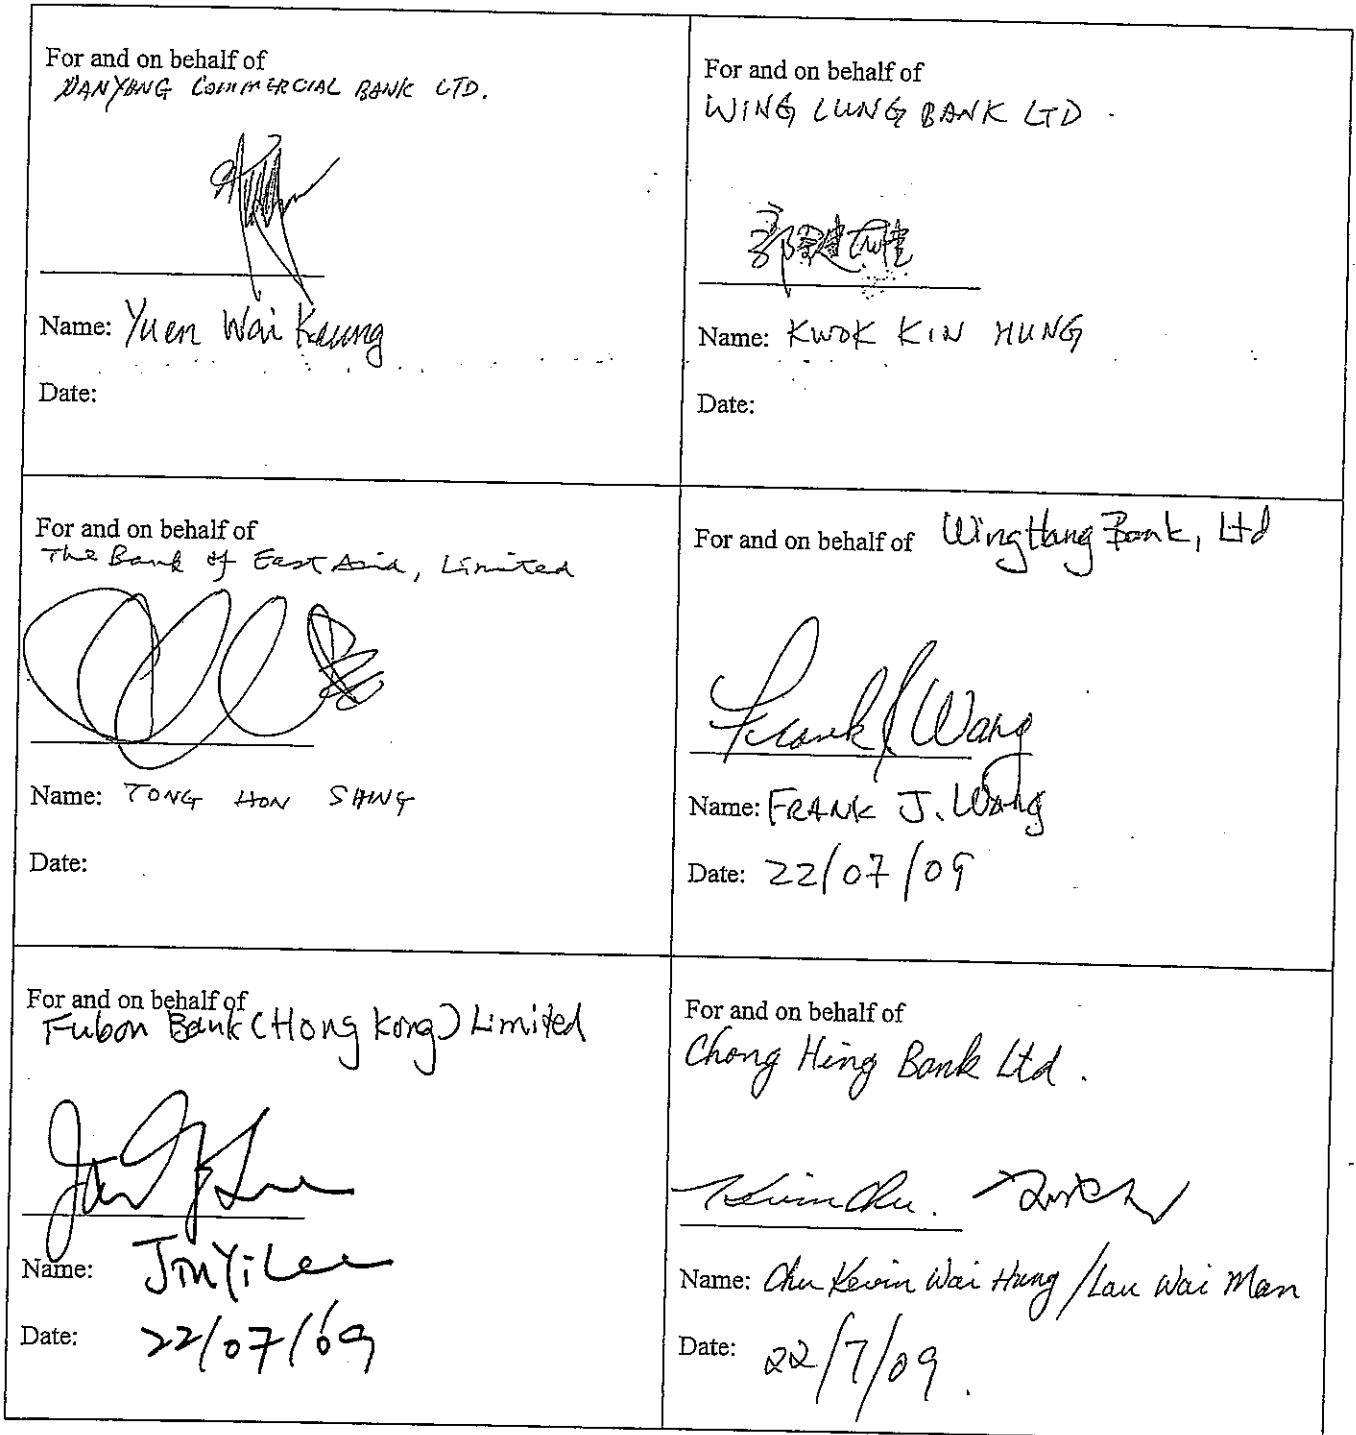 For and on behalf of
NANYANG COMMERCIAL BANK LTD.
Name: Yuen Wai Keung
Date:
For and on behalf of
WING LUNG BANK LTD.
Name: KWOK KIN HUNG
Date:
For and on behalf of
The Bank of East Asia, Limited
Name: TONG HON SHING
Date:
For and on behalf of Wing Hang Bank, Ltd
Frank J Wang
Name: FRANK J. Wang
Date: 22/07/09
For and on behalf of
Fubon Bank (Hong Kong) Limited
Name: Jin Yi Lee
Date: 22/07/09
For and on behalf of
Chong Hing Bank Ltd.
Kevin Chu.
Name: Chu Kevin Wai Hung / Lau Wai Man
Date: 22/7/09.